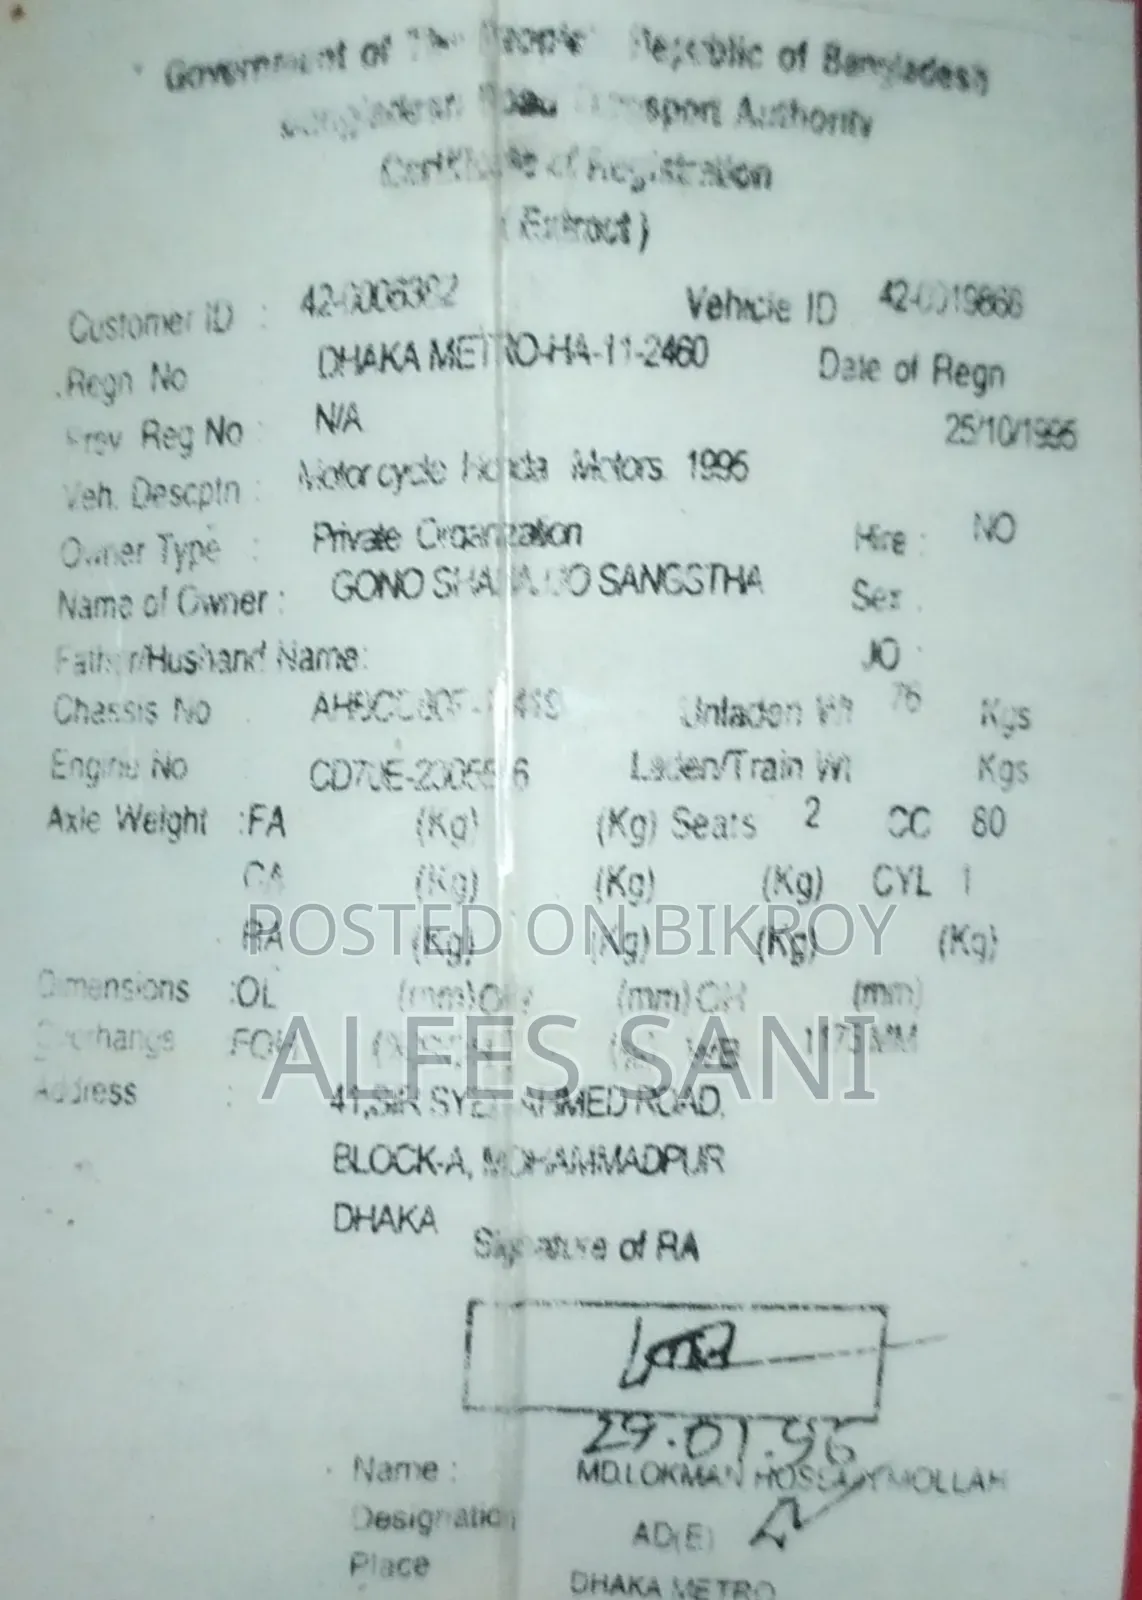 Government of The People Republic of Bangladesh
Bangladesh Road Transport Authority
Certificate of Registration
(Extract)
Customer ID : Vehicle ID
Regn No DHAKA METRO-HA-11-2460 Date of Regn
Prev Reg No : N/A 25/10/1995
Veh. Descptn : Motorcycle Honda Motors 1995
Owner Type : Private Organization Hire : NO
Name of Owner : GONO SANGSTHA Sex :
Father/Husband Name: JO :
Chassis No Unladen Wt 76 Kgs
Engine No Laden/Train Wt Kgs
Axle Weight :FA (Kg) (Kg) Seats 2 CC 80
CA (Kg) (Kg) (Kg) CYL 1
RA (Kg) (Kg) (Kg) (Kg)
POSTED ON BIKROY
Dimensions :OL (mm) (mm) OH (mm)
Overhangs WB MM
ALFES SANI
Address : 41, SIR SYED AHMED ROAD,
BLOCK-A, MOHAMMADPUR
DHAKA
Signature of RA
29.01.96
Name : MD.LOKMAN HOSSAIN MOLLAH
Designation AD(E)
Place DHAKA METRO